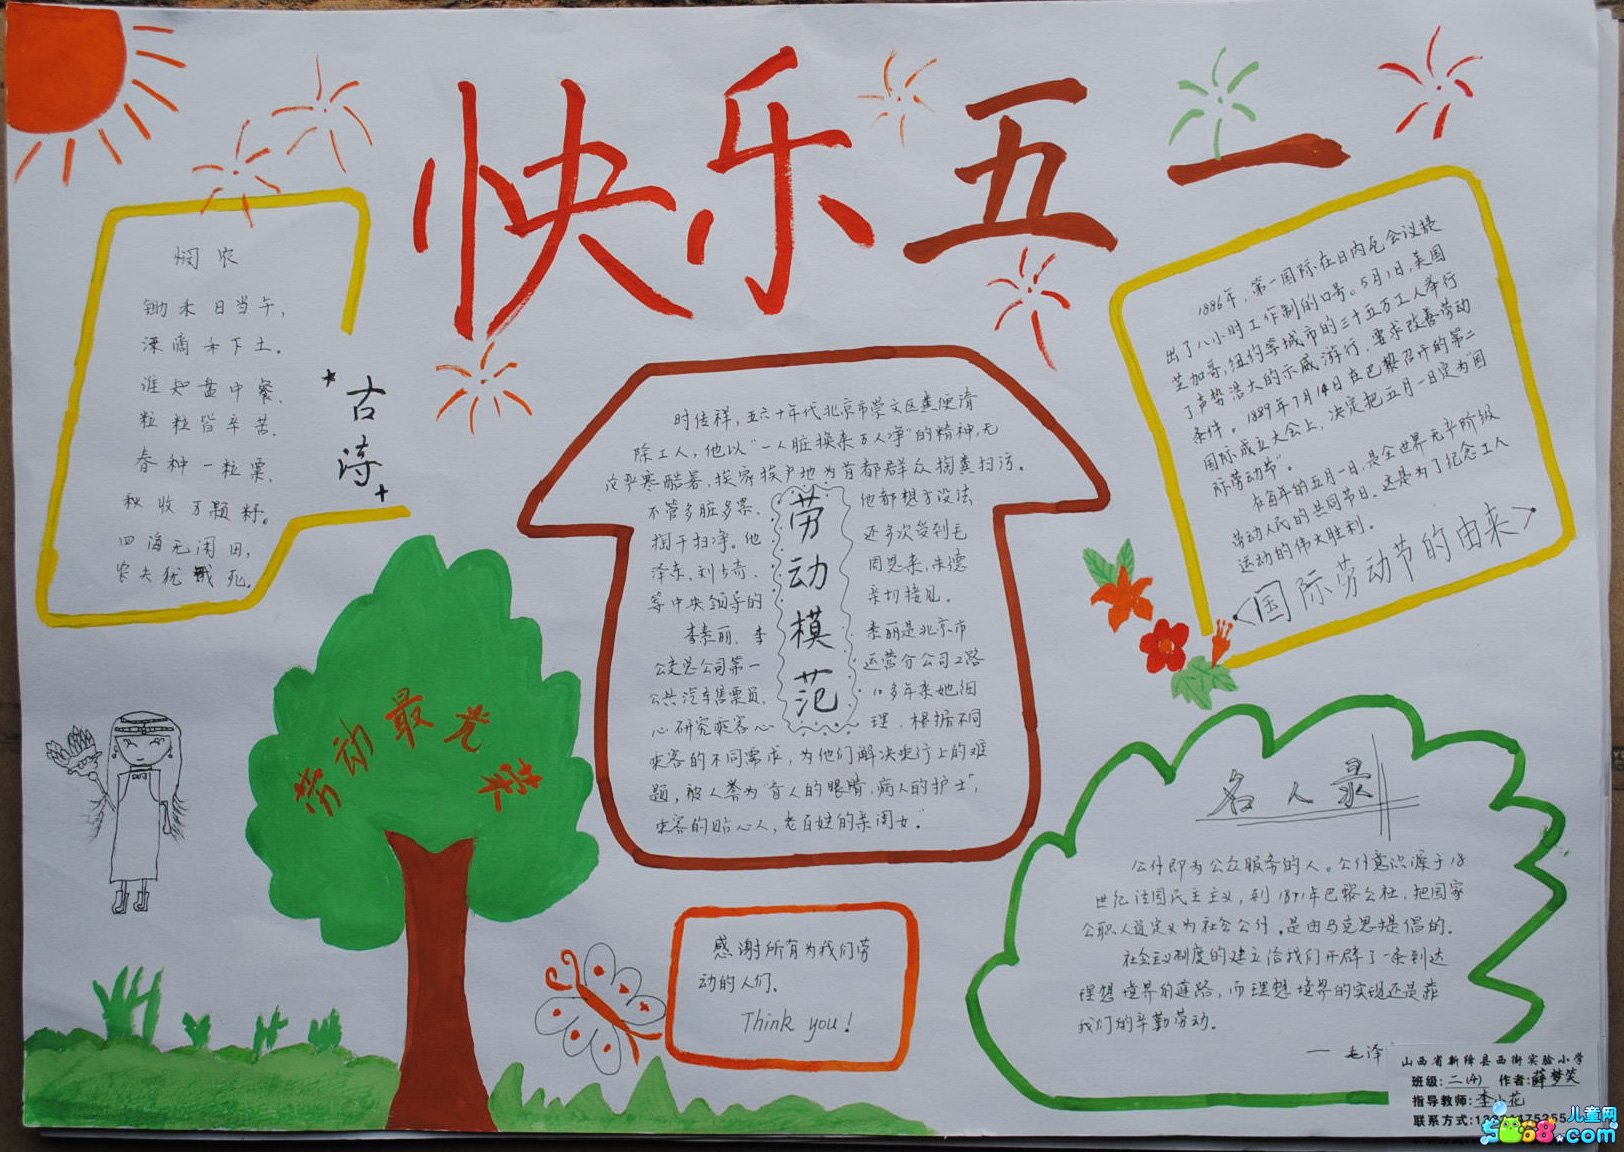 快乐五一
悯农
锄禾日当午，
谁知盘中餐，
粒粒皆辛苦。
春种一粒粟，
秋收万颗籽。
四海无闲田，
农夫犹饿死。
古诗
时传祥，五六十年代北京市崇文区粪便清
除工人，他以“一人脏换来万人净”的精神，无
论严寒酷暑，挨家挨户地为首都群众掏粪扫污。
不管多脏多累，他都想方设法
掏干扫净。他还多次受到毛
泽东、刘少奇、周恩来、朱德
等中央领导的亲切接见。
李素丽，李素丽是北京市
公交总公司第一运营分公司2路
公共汽车售票员，10多年来她细
心研究乘客心理，根据不同
乘客的不同需求，为他们解决乘行上的难
题，被人誉为“盲人的眼睛，病人的护士”，
乘客的贴心人，老百姓的亲闺女。”
劳动模范
1886年，第一国际在日内瓦会议提
出了八小时工作制的口号。5月1日，美国
芝加哥，纽约等城市的三十五万工人举行
了声势浩大的示威游行，要求改善劳动
条件。1889年7月14日在巴黎召开的第二
国际成立大会上，决定把五月一日定为“国
际劳动节”。
在每年的五月一日，是全世界无产阶级
劳动人民的共同节日，这是为了纪念工人
运动的伟大胜利。
<国际劳动节的由来>
劳动最光荣
感谢所有为我们劳
动的人们。
Think you!
名人录
公仆即为公众服务的人。公仆意识源于18
世纪法国民主主义，到1871年巴黎公社，把国家
公职人员定义为社会公仆，是由马克思提倡的。
社会主义制度的建立给我们开辟了一条到达
理想境界的道路，而理想境界的实现还是靠
我们的辛勤劳动。
— 毛泽
山西省新绛县西街实验小学
班级:二(4) 作者:薛梦笑
指导教师:李小花
联系方式:
儿童网
5068.com